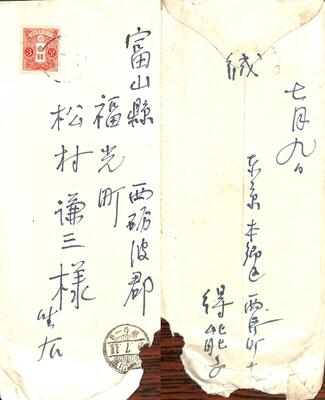 富山縣 西砺波郡
福光町
松村謙三様
坐右
緘
七月九日
東京本郷区西片町十
得能文